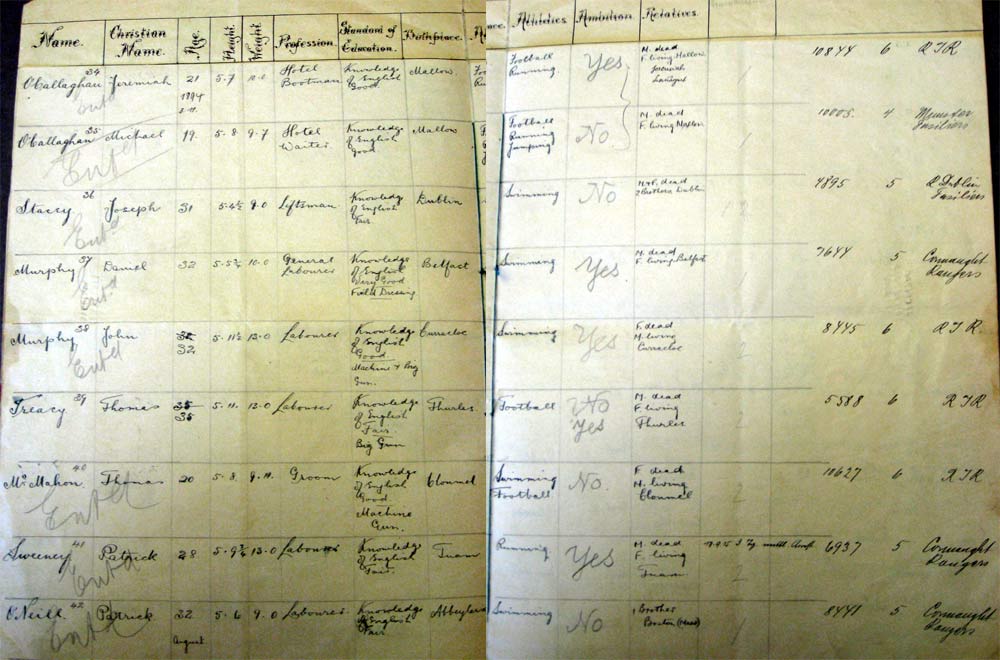 Name. Christian Name. Age. Height. Weight. Profession. Standard of Education. Birthplace. Athletics Ambition. Relatives.
O'Callaghan 34 Jeremiah 21 5.7 10.0 Hotel Bootman Knowledge of English Good Mallow. Football Running. Yes M. dead F. living Mallow Jeremiah 10844 6 R I R
Entd 1894
O'Callaghan 35 Michael 19. 5.8 9.7 Hotel Waiter Knowledge of English Good Mallow Football Running Jumping No M. dead F. living Mallow 4 Munster Fusiliers
Entd
Stacey 36 Joseph 31 5.4½ 9.0 Liftsman Knowledge of English Fair Dublin Swimming No M+F. dead Brothers Dublin 4895 5 R Dublin Fusiliers
Entd
Murphy 37 Daniel 32 10.0 General Labourer Knowledge of English Very Good Field Dressing Belfast Swimming Yes M. dead F. living Belfast 7644 5 Connaught Rangers
Entd
Murphy 38 John 32 5.11½ 13.0 Labourer Knowledge of English Good Machine + Big Gun. Curracloe Swimming Yes F. dead M. living Curracloe 2 8445 6 R I R.
Entd
Treacy 39 Thomas 35 35 5.11. 13.0 Labourer Knowledge of English Fair. Big Gun Thurles. Football No Yes M. dead F. living Thurles 2 5588 6 R I R
McMahon 40 Thomas 20 5.8. 9.11. Groom Knowledge of English Good Machine Gun. Clonmel Swimming Football No. F. dead M. living Clonmel 2 10627 6 R I R
Entd
Sweeney 41 Patrick 28 5.9¾ 13.0 Labourer Knowledge of English Fair. Tuam Running Yes M. dead F. living Tuam 2 6937 5 Connaught Rangers
Entd
O'Neill 42 Patrick 32 5.6 9.0 Labourer Knowledge of English Fair Swimming No 1 Brother Boston (Mass) 1 8441 5 Connaught Rangers
Entd August